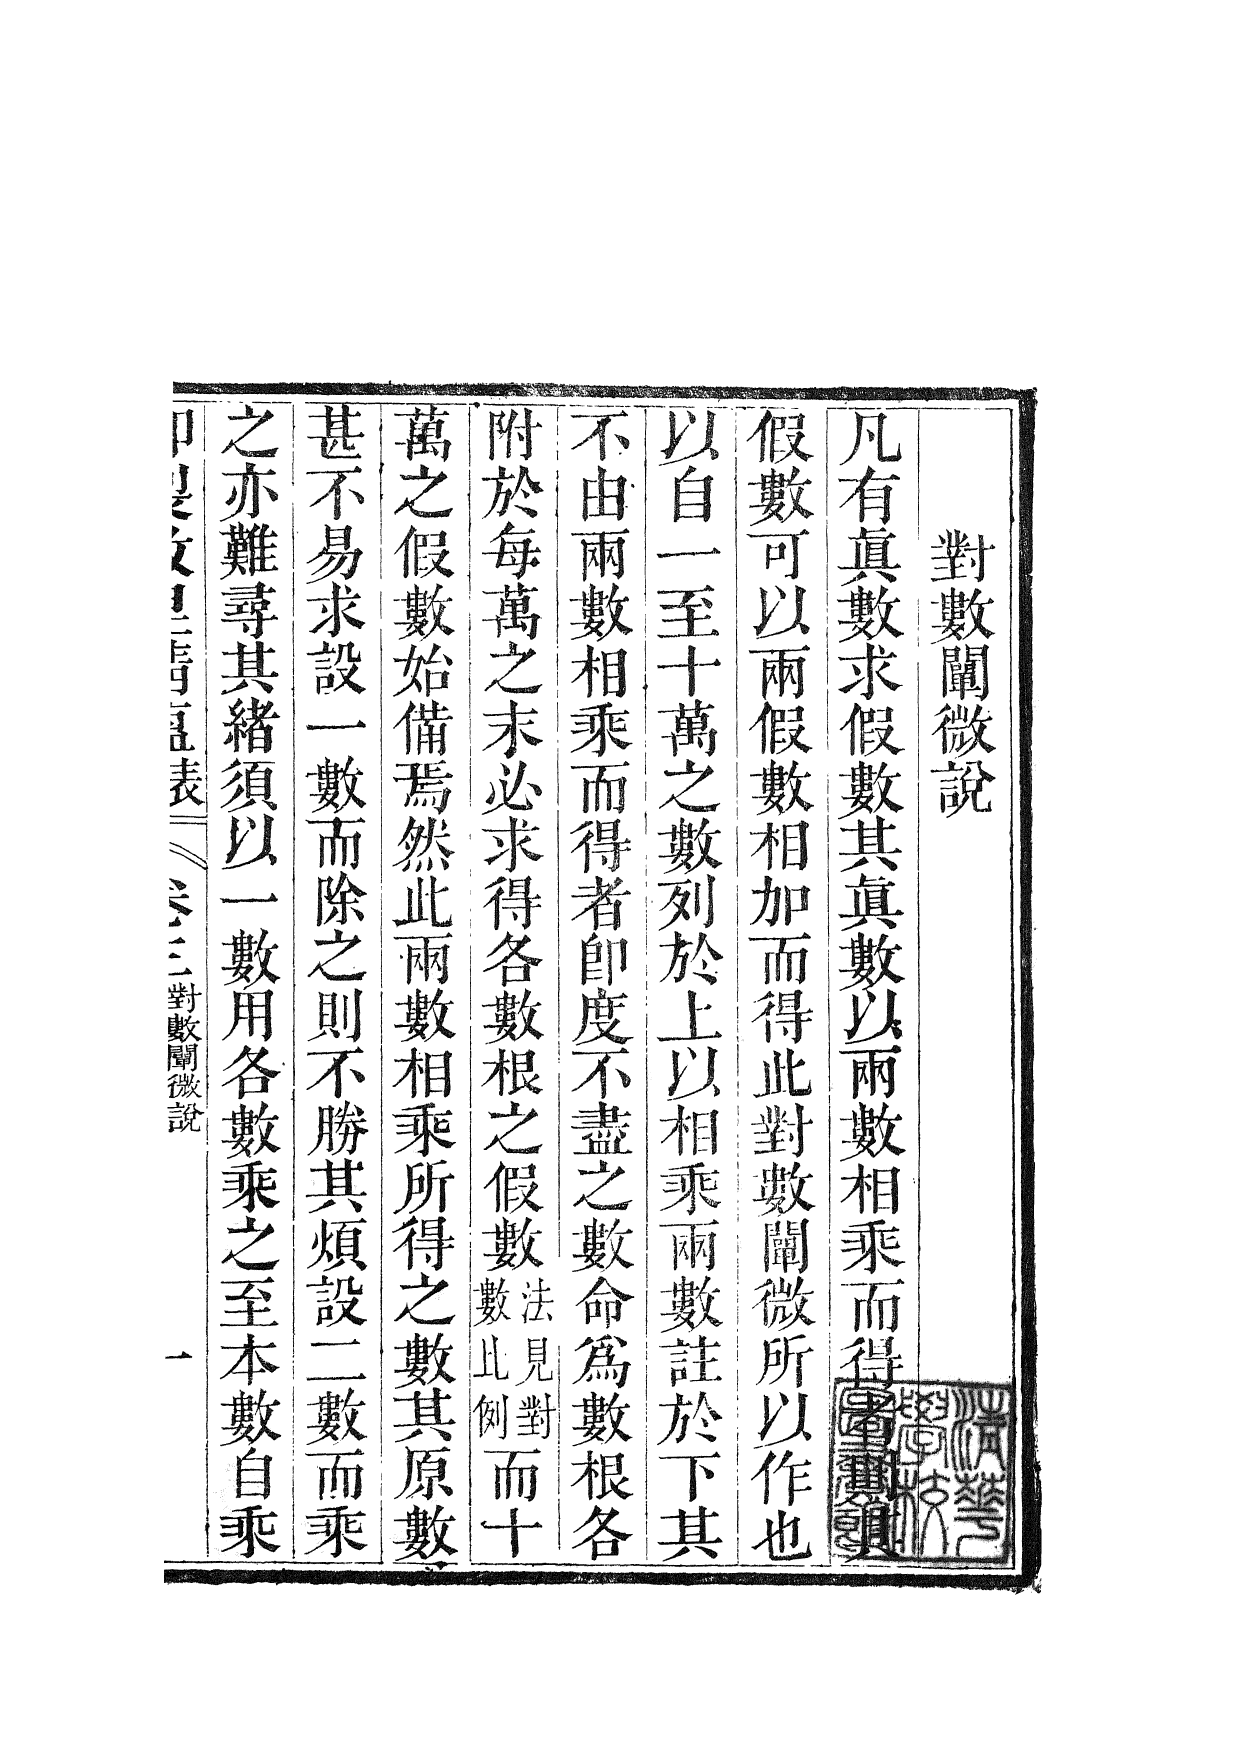 對數闡微說
凡有眞數求假數其眞數以兩數相乘而得者
假數可以兩假數相加而得此對數闡微所以作也
以自一至十萬之數列於上以相乘兩數註於下其
不由兩數相乘而得者卽度不盡之數命爲數根各
附於每萬之末必求得各數根之假數法見對數比例而十
萬之假數始備焉然此兩數相乘所得之數其原數
甚不易求設一數而除之則不勝其煩設二數而乘
之亦難尋其緖須以一數用各數乘之至本數自乘
表 卷三 對數闡微說 一
清華學校